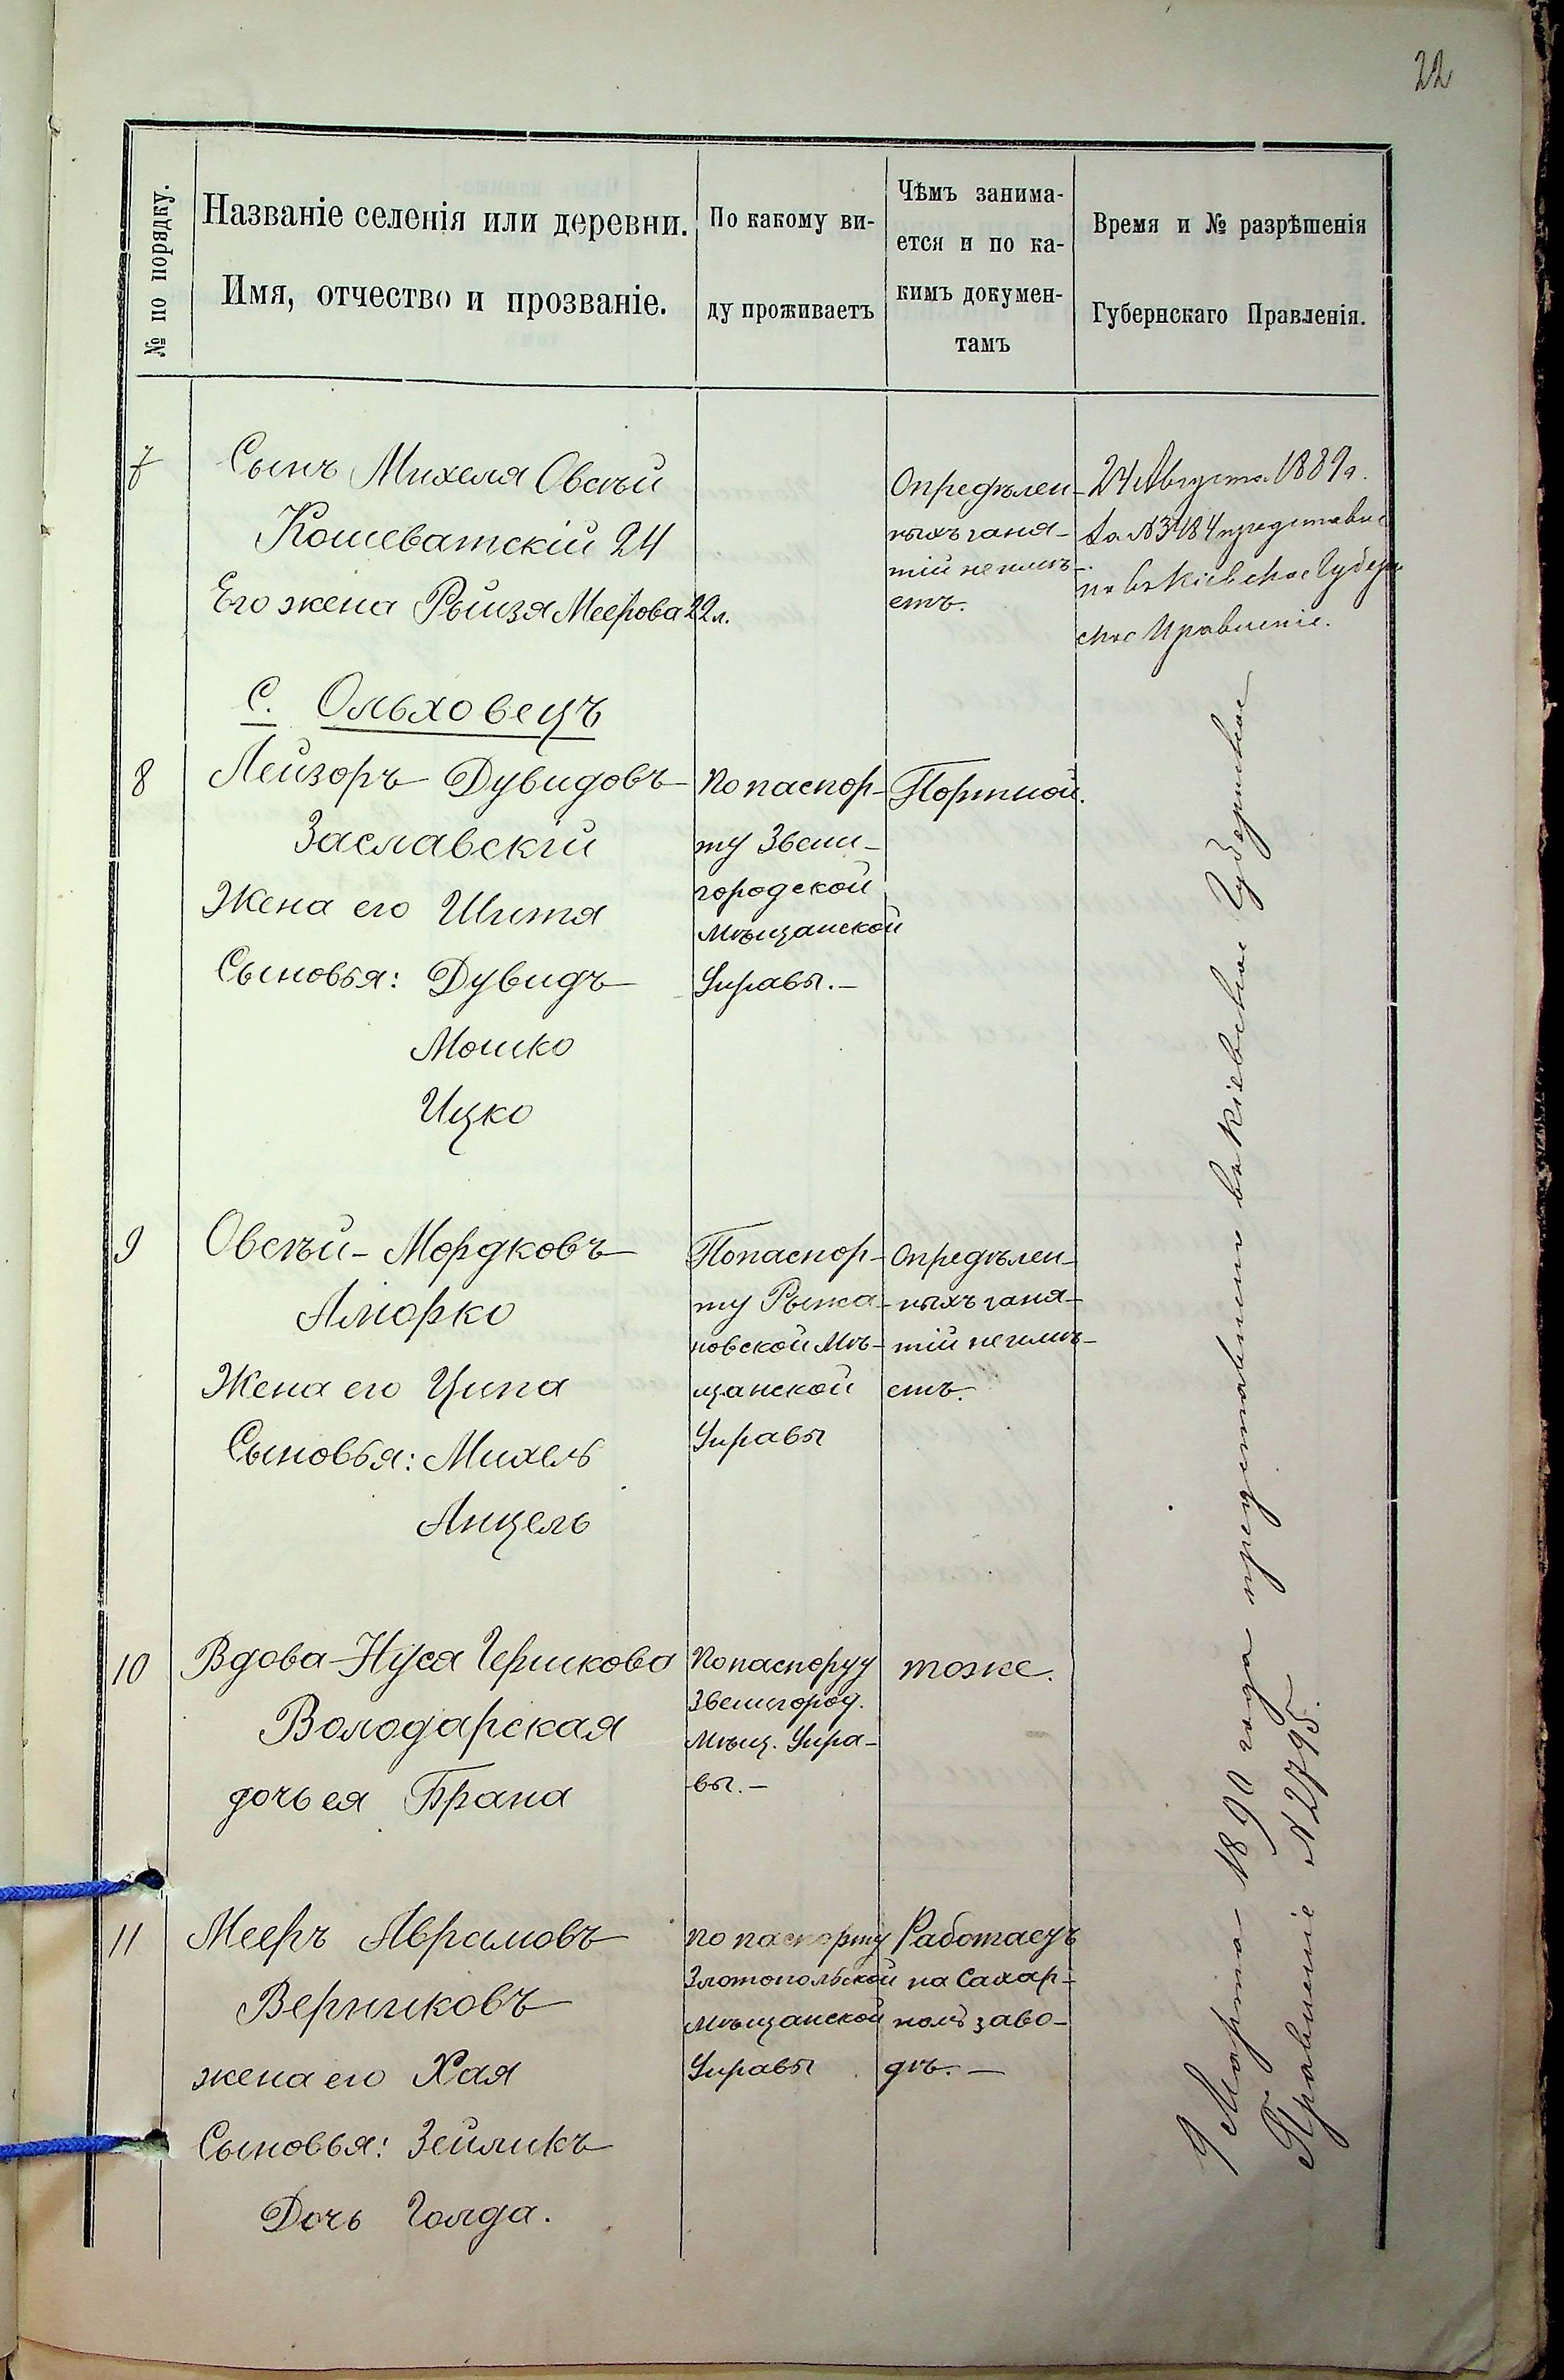 22
№ по порядку.
Названіе селенія или деревни.
Имя, отчество и прозваніе.
По какому ви-
ду проживаетъ
Чѣмъ занима-
ется и по ка-
кимъ докумен-
тамъ
Время и № разрѣшенія
Губернскаго Правленія.
7
Сынъ Михеля Овсѣй
Кошеватскій 24
Его жена Рыйзя Меерова 22 л.
Опредѣлен-
ныхъ заня-
тій не имѣ-
етъ.
24 Августа 1889 г.
за № 3484 представле
но въ Кіевское Губерн
ское Правленіе.
С. Ольховецъ
8
Лейзоръ Дувидовъ
Заславскій
Жена его Шитя
Сыновья: Дувидъ
Мошко
Ицко
По паспор-
ту Звени-
городской
Мѣщанской
Управы.-
Портной.
9
Овсѣй-Мордковъ
Аморко
Жена его Ципа
Сыновья: Михель
Анцель
По паспор-
ту Рыжа-
новской Мѣ-
щанской
Управы
Опредѣлен-
ныхъ заня-
тій не имѣ-
етъ.
10
Вдова Нуся Гершкова
Володарская
дочь ея Брана
По паспорту
Звенигород.
Мѣщ. Упра-
вы.-
тоже.
11
Мееръ Аврамовъ
Верниковъ
жена его Хая
Сыновья: Зейликъ
Дочь Голда.
По паспорту
Златопольской
Мѣщанской
Управы
Работаетъ
на Сахар-
номъ заво-
дѣ.-
9 Марта 1890 года представлено въ Кіевское Губернское
Правленіе № 2795.